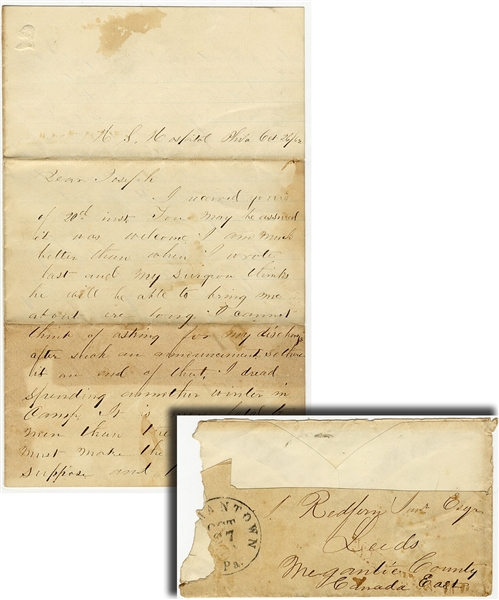 U. S. Hospital Phila Oct 26/63
Dear Joseph
I received yours
of 20th inst You may be assured
it was welcome I am much
better than when I wrote
last and my surgeon thinks
he will be able to bring me
about ere long. I cannot
think of asking for my discharge
after such an announcement, so there
is an end of that. I dread
spending another winter in
Camp. It is
than
must make the
suppose and
ANTOWN
OCT
27
Pa.
Redfern Esqr
Leeds
Megantic County
Canada East